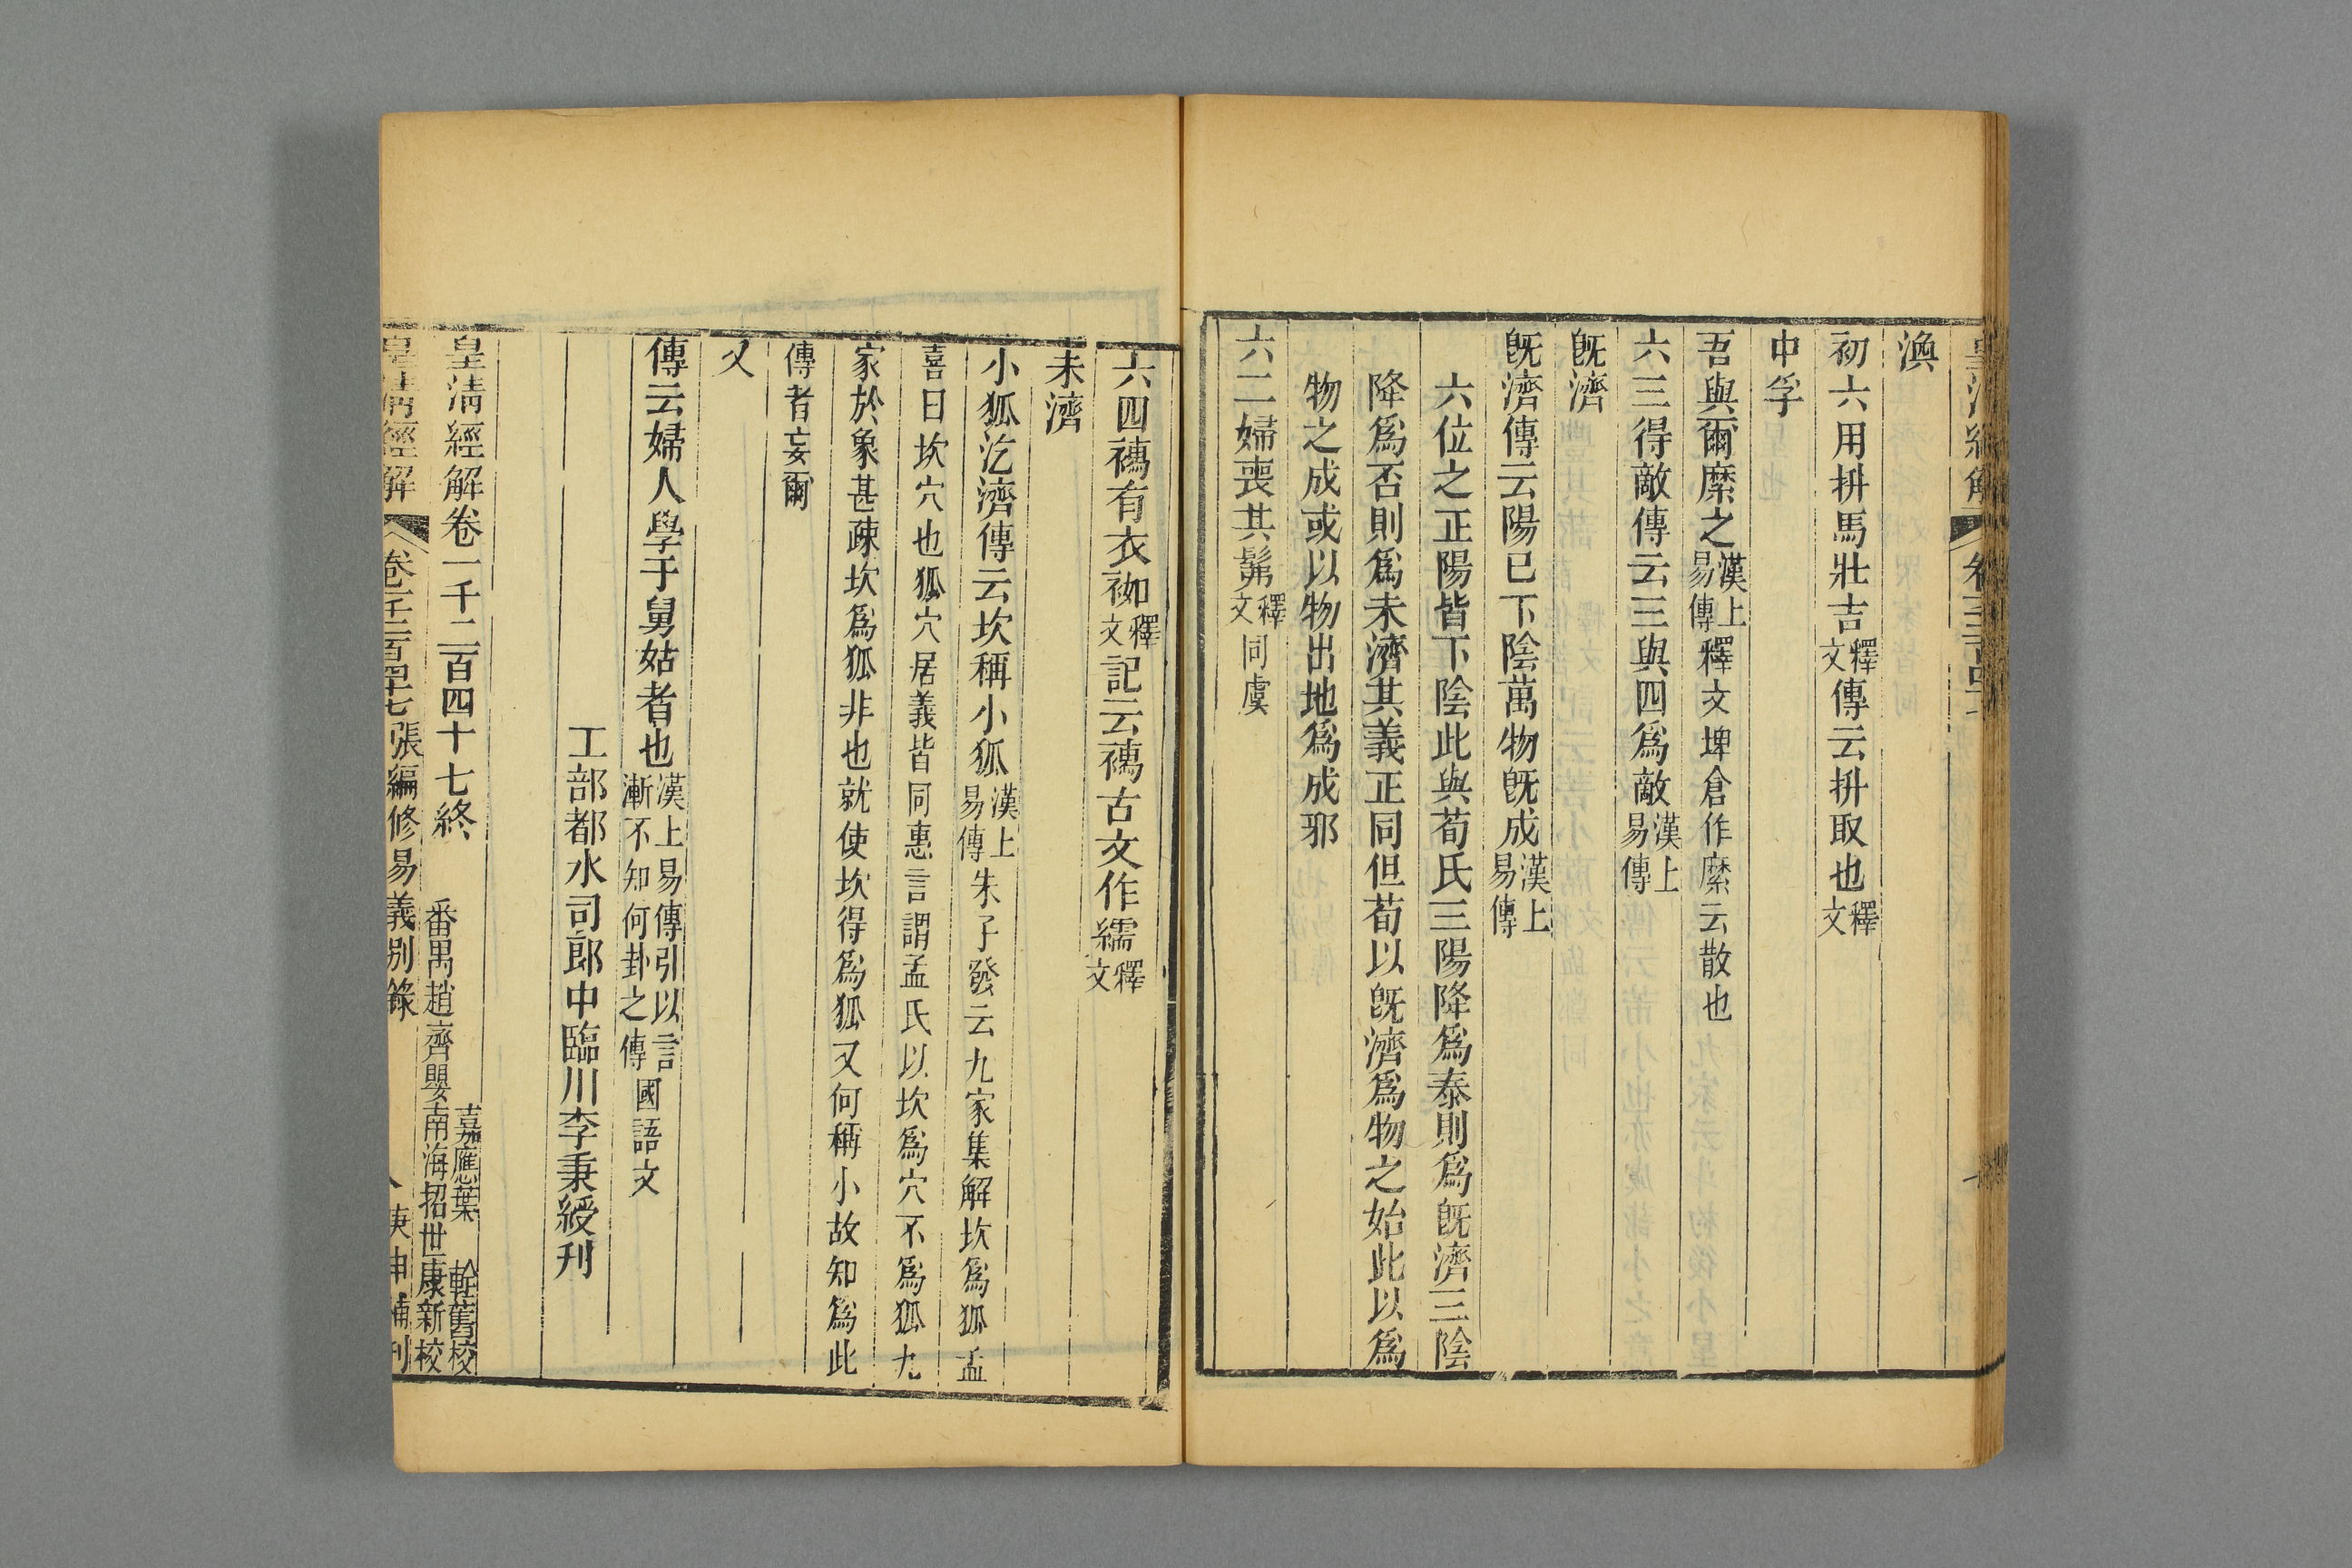 渙
初六用拚馬壯吉釋文傳云拚取也釋文
中孚
吾與爾縻之漢上易傳釋文埤倉作縻云散也
六三得敵傳云三與四爲敵漢上易傳
旣濟
旣濟傳云陽已下陰萬物旣成漢上易傳
六位之正陽皆下陰此與荀氏三陽降爲泰則爲旣濟三陰
降爲否則爲未濟其義正同但荀以旣濟爲物之始此以爲
物之成或以物出地爲成邪
六二婦喪其髴釋文同虞
六四襦有衣袽釋文記云襦古文作繻釋文
未濟
小狐汔濟傳云坎稱小狐漢上易傳朱子發云九家集解坎爲狐孟
喜曰坎穴也狐穴居義皆同惠言謂孟氏以坎爲穴不爲狐九
家於象甚疎坎爲狐非也就使坎得爲狐又何稱小故知爲此
傳者妄爾
又
傳云婦人學于舅姑者也漢上易傳引以言漸不知何卦之傳國語文
工部都水司郎中臨川李秉綬刊
皇淸經解卷一千二百四十七終
嘉應葉　輇舊校
番禺趙齊嬰南海招世康新校
皇淸經解　卷一千二百四十七　張編修易義別錄　庚申補刊